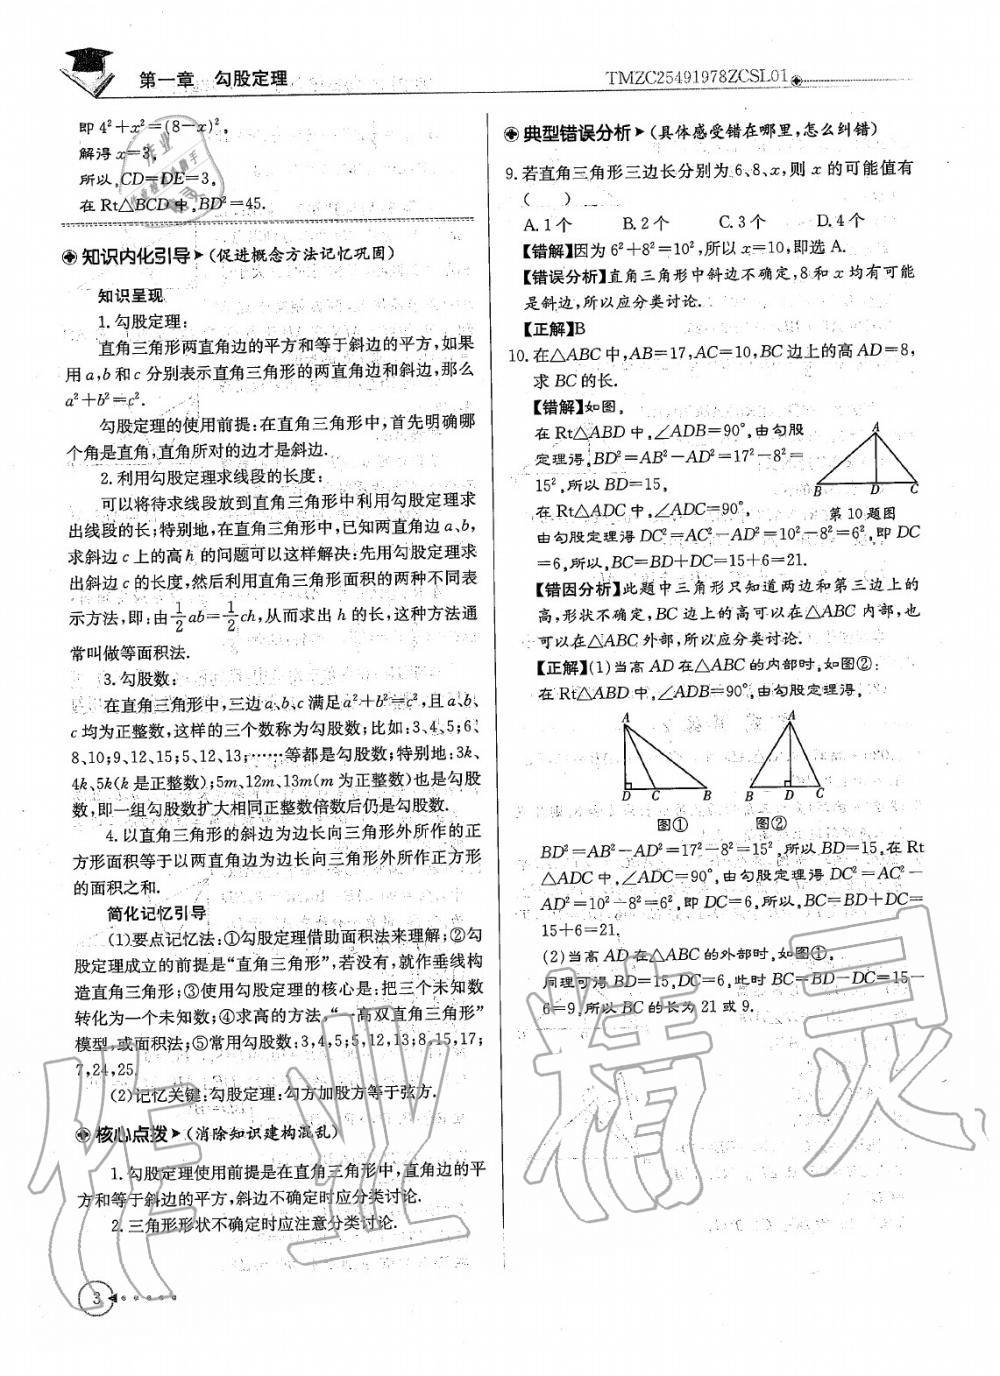 第一章 勾股定理
TMZC25491978ZCSL01
即 4²+x²=(8-x)²,
解得 x=3,
所以,CD=DE=3,
在 Rt△BCD 中,BD²=45.
知识内化引导(促进概念方法记忆巩固)
知识呈现
1.勾股定理:
直角三角形两直角边的平方和等于斜边的平方,如果
用 a,b 和 c 分别表示直角三角形的两直角边和斜边,那么
a²+b²=c².
勾股定理的使用前提:在直角三角形中,首先明确哪
个角是直角,直角所对的边才是斜边.
2.利用勾股定理求线段的长度:
可以将待求线段放到直角三角形中利用勾股定理求
出线段的长;特别地,在直角三角形中,已知两直角边 a、b,
求斜边 c 上的高 h 的问题可以这样解决:先用勾股定理求
出斜边 c 的长度,然后利用直角三角形面积的两种不同表
示方法,即:由 1/2 ab = 1/2 ch,从而求出 h 的长,这种方法通
常叫做等面积法.
3.勾股数:
在直角三角形中,三边 a、b、c 满足 a²+b²=c²,且 a、b、
c 均为正整数,这样的三个数称为勾股数;比如:3、4、5;6、
8、10;9、12、15;5、12、13;……等都是勾股数;特别地:3k、
4k、5k(k 是正整数);5m、12m、13m(m 为正整数)也是勾股
数,即一组勾股数扩大相同正整数倍数后仍是勾股数.
4.以直角三角形的斜边为边长向三角形外所作的正
方形面积等于以两直角边为边长向三角形外所作正方形
的面积之和.
简化记忆引导
(1)要点记忆法:①勾股定理借助面积法来理解;②勾
股定理成立的前提是“直角三角形”,若没有,就作垂线构
造直角三角形;③使用勾股定理的核心是:把三个未知数
转化为一个未知数;④求高的方法,“一高双直角三角形”
模型,或面积法;⑤常用勾股数:3,4,5;5,12,13;8,15,17;
7,24,25.
(2)记忆关键:勾股定理:勾方加股方等于弦方.
核心点拨(消除知识建构混乱)
1.勾股定理使用前提是在直角三角形中,直角边的平
方和等于斜边的平方,斜边不确定时应分类讨论.
2.三角形形状不确定时应注意分类讨论.
3
典型错误分析(具体感受错在哪里,怎么纠错)
9.若直角三角形三边长分别为 6、8、x,则 x 的可能值有
( )
A.1个 B.2个 C.3个 D.4个
【错解】因为 6²+8²=10²,所以 x=10,即选 A.
【错误分析】直角三角形中斜边不确定,8 和 x 均有可能
是斜边,所以应分类讨论.
【正解】B
10.在△ABC 中,AB=17,AC=10,BC 边上的高 AD=8,
求 BC 的长.
【错解】如图,
在 Rt△ABD 中,∠ADB=90°,由勾股
定理得,BD²=AB²-AD²=17²-8²=
15²,所以 BD=15,
在 Rt△ADC 中,∠ADC=90°,
A
B D C
第10题图
由勾股定理得 DC²=AC²-AD²=10²-8²=6²,即 DC
=6,所以,BC=BD+DC=15+6=21.
【错因分析】此题中三角形只知道两边和第三边上的
高,形状不确定,BC 边上的高可以在△ABC 内部,也
可以在△ABC 外部,所以应分类讨论.
【正解】(1)当高 AD 在△ABC 的内部时,如图②:
在 Rt△ABD 中,∠ADB=90°,由勾股定理得,
A A
D C B B D C
图① 图②
BD²=AB²-AD²=17²-8²=15²,所以 BD=15,在 Rt
△ADC 中,∠ADC=90°,由勾股定理得 DC²=AC²-
AD²=10²-8²=6²,即 DC=6,所以,BC=BD+DC=
15+6=21.
(2)当高 AD 在△ABC 的外部时,如图①,
同理可得 BD=15,DC=6,此时 BC=BD-DC=15-
6=9,所以 BC 的长为 21 或 9.
作业精灵